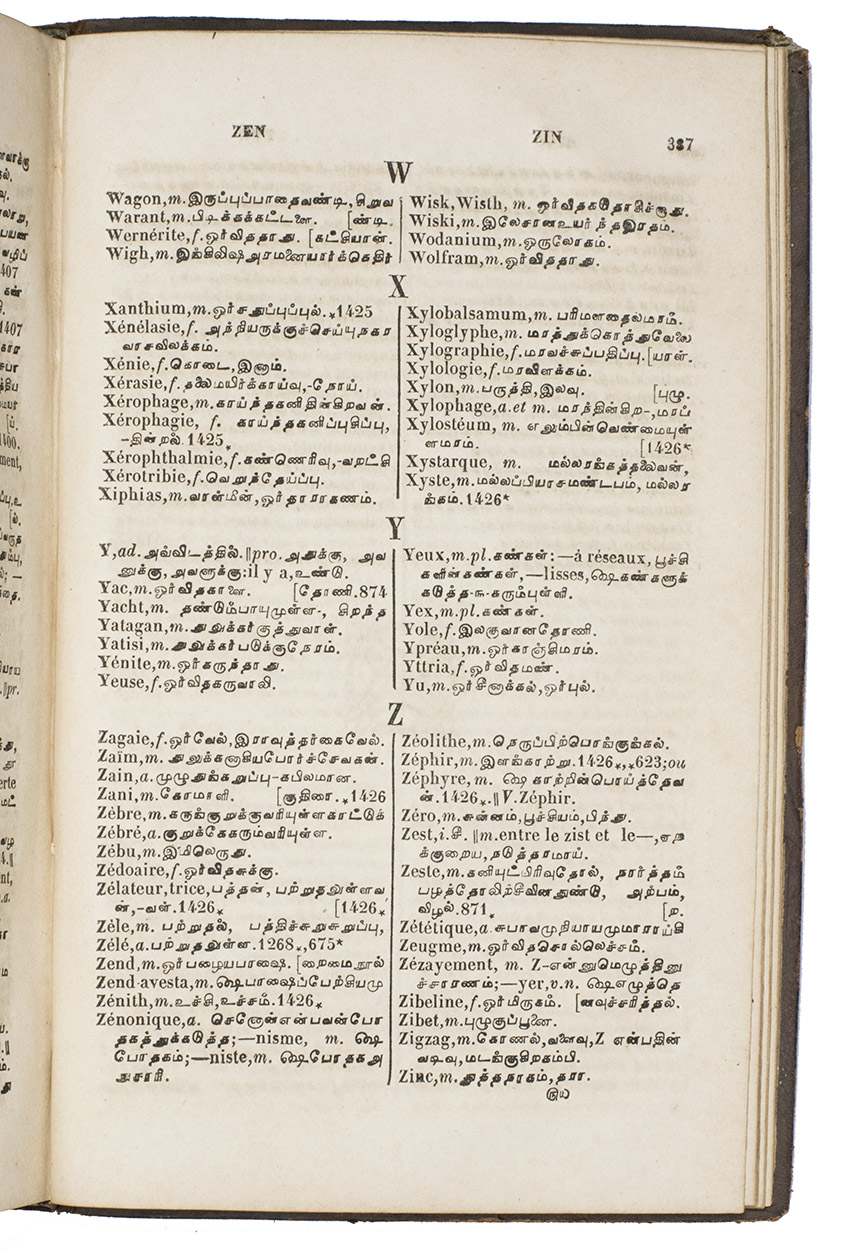 ZEN ZIN 387
W
Wagon,m.இருப்புப்பாதைவண்டி,சிறுவ
Warant,m.பிடிக்கக்கட்டளை. [ண்டி.
Wernérite,f.ஓர்விததாது. [கட்சியான்.
Wigh,m.இங்கிலிஷ அரமனையார்க்கெதிர்
Wisk, Wisth, m.
Wiski,m.இலேசானஉயர்ந்தஇரதம்.
Wodanium,m.ஒருலோகம்.
Wolfram,m.ஓர்விததாது.
X
Xanthium,m. 1425
Xénélasie,f. அந்நியருக்குச்செய்யுநகர
வாசவிலக்கம்.
Xénie,f.கொடை,இனாம்.
Xérasie,f.தலைமயிர்க்காய்வு,-நோய்.
Xérophage,m.காய்ந்தகனிதின்கிறவன்.
Xérophagie, f. காய்ந்தகனிப்புசிப்பு,
-தின்றல்.1425*
Xérophthalmie,f.கண்ணெரிவு,-வறட்சி
Xérotribie,f.வெறுந்தேய்ப்பு.
Xiphias,m.வாள்மீன்,ஓர்தாராகணம்.
Xylobalsamum, m. பரிமளதைலமரம்.
Xyloglyphe,m. மரத்துக்கொத்துவேலை
Xylographie,f.மரவச்சுப்பதிப்பு.[யாள்.
Xylologie,f.மரவிளக்கம்.
Xylon,m.பருத்தி,இலவு. [புழு.
Xylophage,a.et m. மரந்தின்கிற-,மரப்
Xylostéum, m. எலும்பின்வெண்மையுள்
ளமரம். [1426*
Xystarque, m. மல்லரங்கத்தலைவன்,
Xyste,m.மல்லப்பியாசமண்டபம், மல்லர
ங்கம்.1426*
Y
Y,ad.அவ்விடத்தில்.‖pro.அதுக்கு, அவ
னுக்கு,அவளுக்கு:il y a,உண்டு.
Yac,m.ஓர்விதகாளை. [தோணி.874
Yacht,m. தண்டும்பாயுமுள்ள-, சிறந்த
Yatagan,m.துலுக்கர்குத்துவாள்.
Yatisi,m.துலுக்கர்படுக்குநேரம்.
Yénite,m.ஓர்கருந்தாது.
Yeuse,f.ஓர்விதகருவாலி.
Yeux,m.pl.கண்கள்:—à réseaux,பூச்சி
களின்கண்கள்,—lisses,
Yex,m.pl.கண்கள்.
Yole,f.இலகுவானதோணி.
Ypréau,m.ஓர்காஞ்சிமரம்.
Yttria,f.ஓர்விதமண்.
Yu,m.ஓர்சீனாக்கல்,ஓர்புல்.
Z
Zagaie,f.ஓர்வேல்,இராவுத்தர்கைவேல்.
Zaïm,m. துலுக்கனாகியபோர்ச்சேவகன்.
Zain,a.முழுதுங்கறுப்பு-கபிலமான.
Zani,m.கோமாளி. [குதிரை.*1426
Zèbre,m.கருங்குறுக்குவரியுள்ளகாட்டுக்
Zébré,a.குறுக்கேகரும்வரியுள்ள.
Zébu,m.இமிலெருது.
Zédoaire,f.ஓர்விதசுக்கு.
Zélateur,trice,பத்தன், பற்றுதலுள்ளவ
ன்,-வள்.1426* [1426*
Zèle,m. பற்றுதல், பத்திச்சுறுசுறுப்பு,
Zélé,a.பற்றுதலுள்ள.1268*,675*
Zend,m.ஓர்பழையபாஷை. [றைமைநூல்
Zend-avesta,m.ஷெபாஷைப்பேற்கியமு
Zénith,m.உச்சி,உச்சம்.1426*
Zénonique,a. செனோன்என்பவன்போ
தகத்துக்கடுத்த;—nisme, m. ஷெ
போதகம்;—niste,m. ஷெபோதகஅ
துசாரி.
Zéolithe,m.நெருப்பிற்பொங்குங்கல்.
Zéphir,m.இளங்காற்று.1426*,*623;ou
Zéphyre, m. ஷெ காற்றின்பொய்த்தேவ
ன்.1426*.‖V.Zéphir.
Zéro,m.சுன்னம்,பூச்சியம்,பிந்து.
Zest,i.சீ. ‖m.entre le zist et le—,ஏற
க்குறைய,நடுத்தரமாய்.
Zeste,m.கனியுட்பிரிவுதோல், நார்த்தம்
பழத்தோலிற்சீவினதுண்டு, அற்பம்,
விழல்.871* [ற.
Zététique,a.சுபாவமுறியாயமுமாராய்கி
Zeugme,m.ஓர்விதசொல்லெச்சம்.
Zézayement, m. Z-என்னுமெழுத்தினு
ச்சாரணம்;—yer,v.n. ஷெஎழுத்தெ
Zibeline,f.ஓர்மிருகம். [னவுச்சரித்தல்.
Zibet,m.புழுகுப்பூனை.
Zigzag,m.கோணல்,வளைவு,Z என்பதின்
வடிவு,மடங்குகிறகம்பி.
Zinc,m.துத்தநாகம்,தரா.